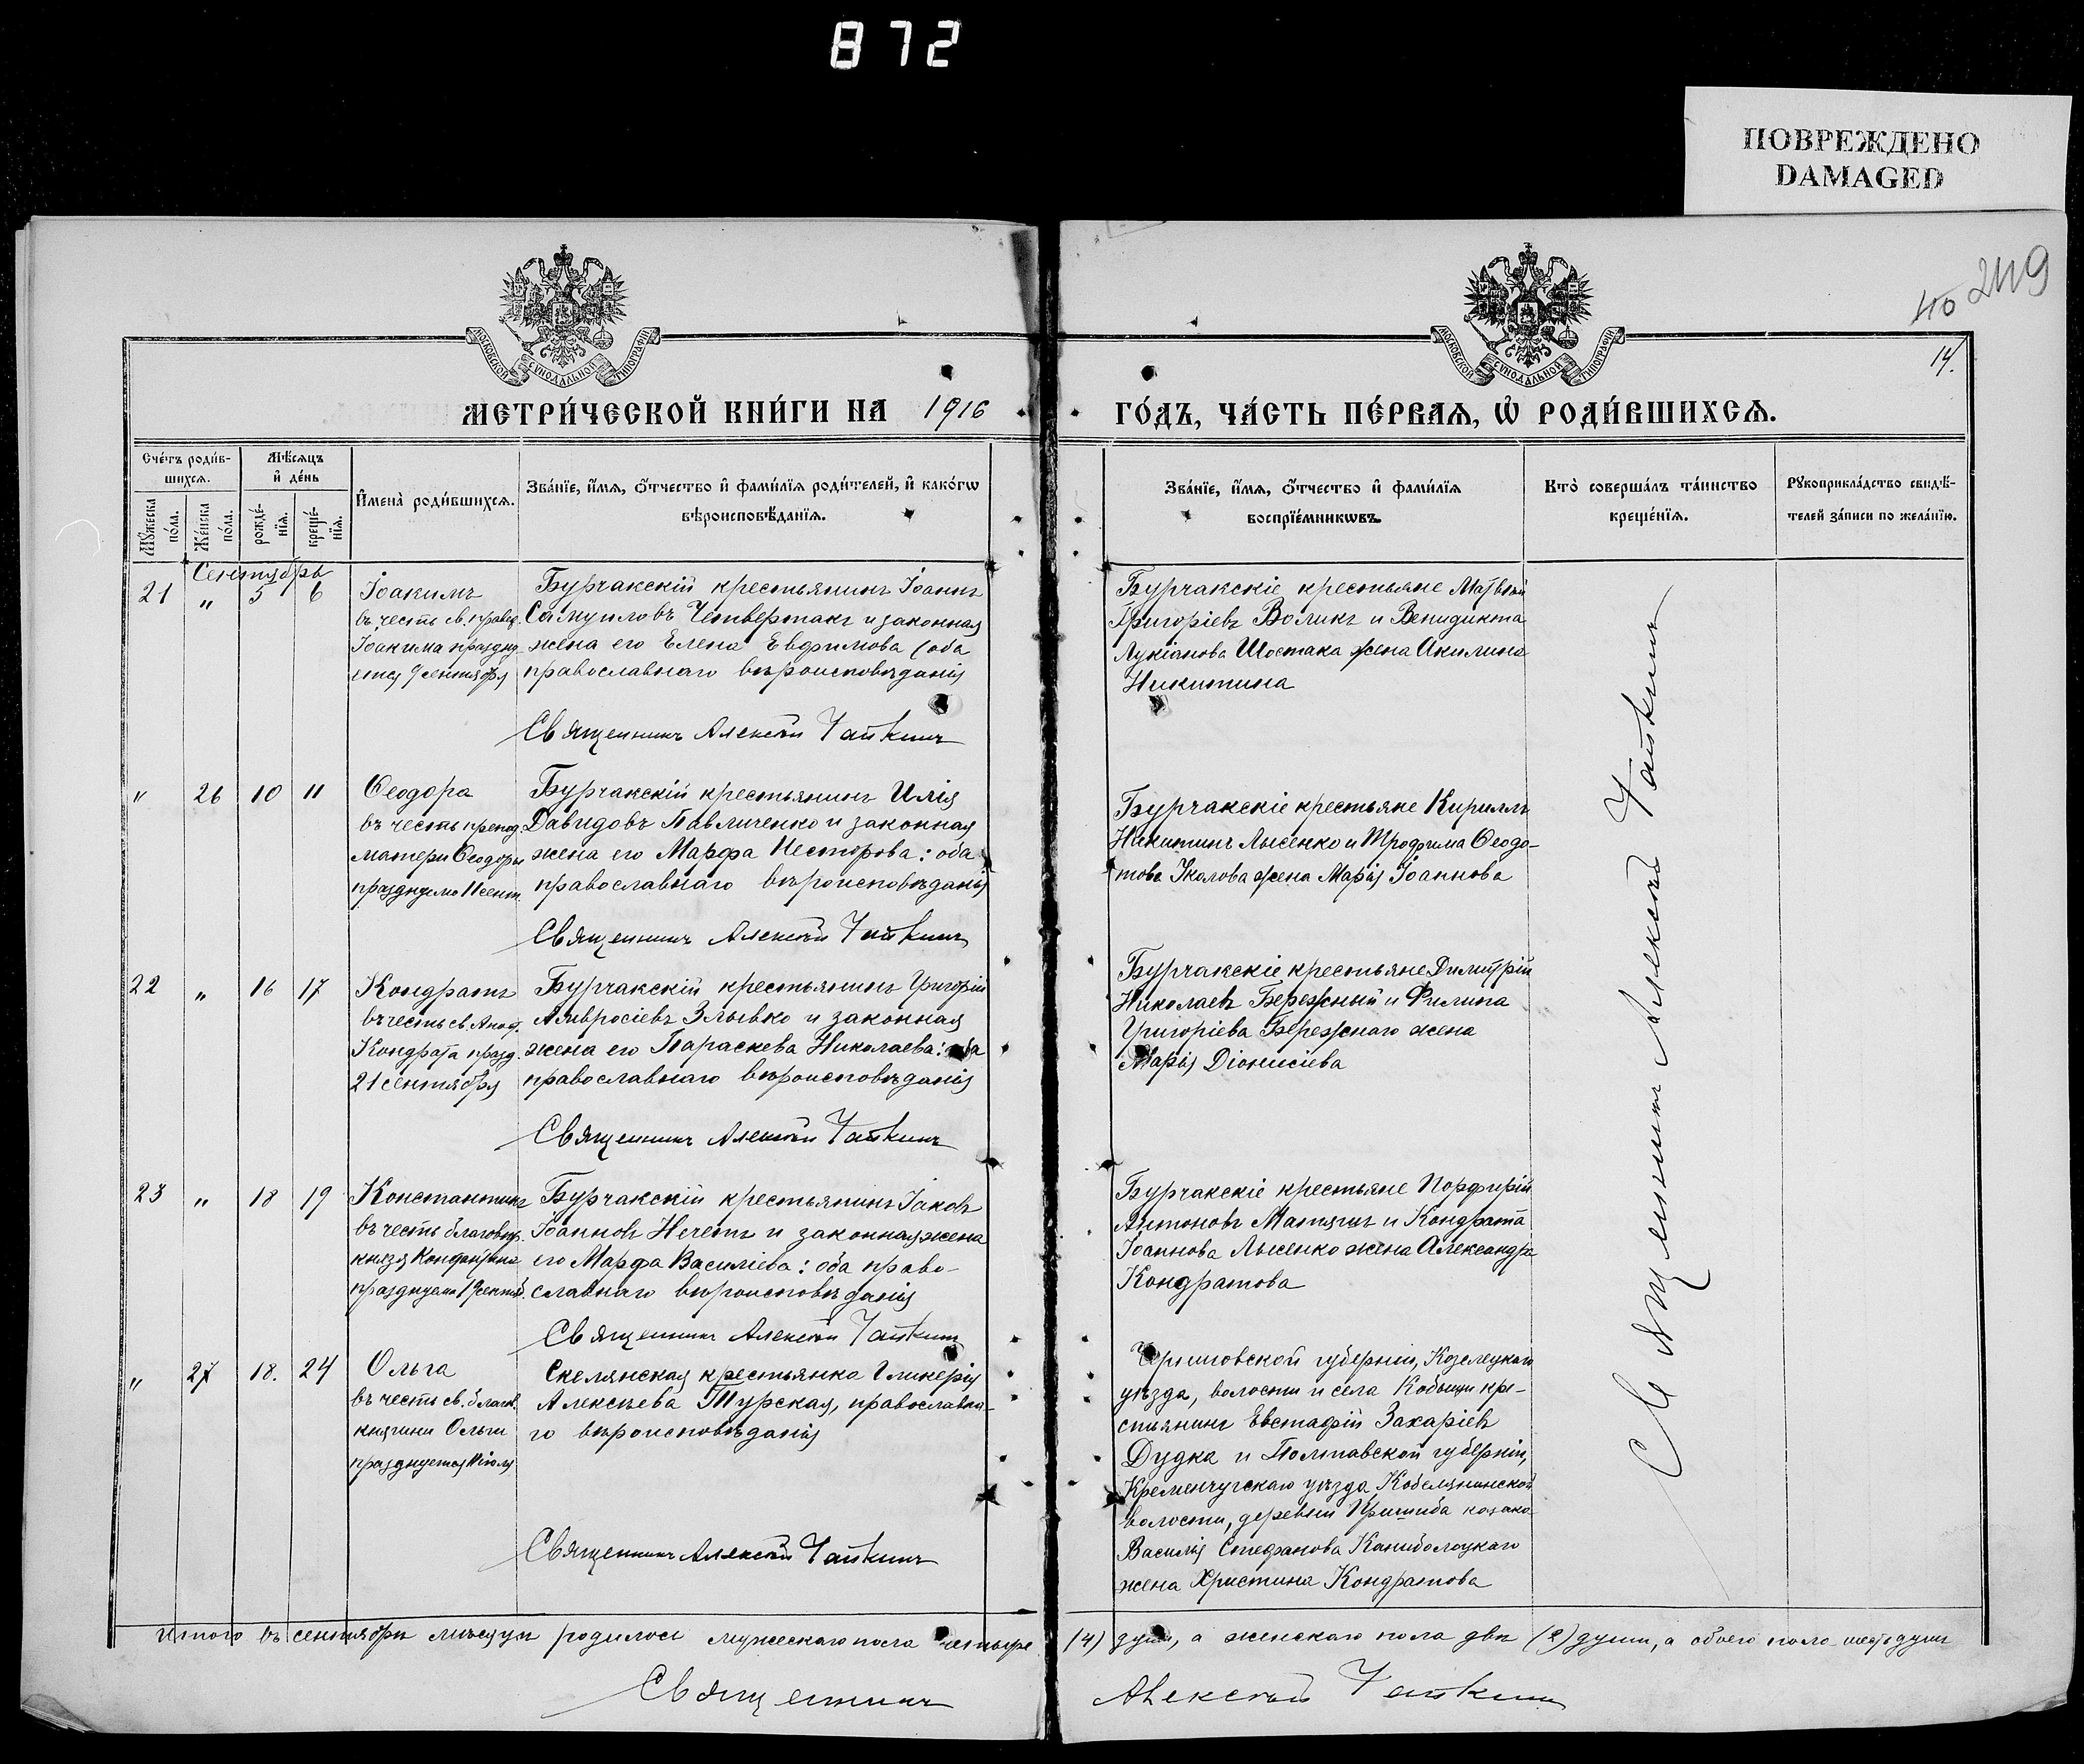 872
ПОВРЕЖДЕНО
DAMAGED
249
40
14.
МОСКОВСКОЙ СѴНОДАЛЬНОЙ ТИПОГРАФІИ
МОСКОВСКОЙ СѴНОДАЛЬНОЙ ТИПОГРАФІИ
МЕТРИ́ЧЕСКОЙ КНИ́ГИ НА 1916
ГО́ДЪ, ЧА́СТЬ ПЕ́РВАѦ, Ѡ҆ РОДИ́ВШИХСѦ.
Сче́тъ роди́в-
шихсѧ.
Мѣ́сѧцъ
и҆ де́нь
Мꙋ́жеска
по́ла.
Же́нска
по́ла.
рожде́-
нїѧ.
креще́-
нїѧ.
И҆мена̀ роди́вшихсѧ.
Зва́нїе, и҆́мѧ, ѻ҆́тчество и҆ фами́лїѧ роди́телей, и҆ како́гѡ
вѣроисповѣ́данїѧ.
Зва́нїе, и҆́мѧ, ѻ҆́тчество и҆ фами́лїѧ
воспрїе́мникѡвъ.
Кто̀ соверша́лъ та́инство
креще́нїѧ.
Рꙋкоприкла́дство свидѣ́-
телей за́писи по жела́нїю.
Сентябрь
21 " 5 6
Іоакимъ
въ честь св. правед.
Іоакима праздну
ется 9 сентября
Бурчакскій крестьянинъ Іоаннъ
Самуиловъ Четвертакъ и законная
жена его Елена Евфимова (оба
православнаго вѣроисповѣданія
Священникъ Алексѣй Чапкинъ
Бурчакскіе крестьяне Матвѣй
Григоріевъ Воликъ и Венидикта
Лукіанова Шостака жена Акилина
Никитина
" 26 10 11
Ѳеодора
въ честь препод.
матери Ѳеодоры
празднуемо 11 сент.
Бурчакскій крестьянинъ Илія
Давидовъ Павличенко и законная
жена его Марфа Несторова: оба
православнаго вѣроисповѣданія
Священникъ Алексѣй Чапкинъ
Бурчакскіе крестьяне Кириллъ
Никитинъ Лысенко и Трофима Ѳеодо-
това жена Марія Іоаннова
22 " 16 17
Кондратъ
въ честь св. Апос.
Кондрата празд.
21 сентября
Бурчакскій крестьянинъ Григорій
Амвросіевъ Злывко и законная
жена его Параскева Николаева: оба
православнаго вѣроисповѣданія
Священникъ Алексѣй Чапкинъ
Бурчакскіе крестьяне Димитрій
Николаевъ Бережный и Филипа
Григоріева Бережнаго жена
Марія Діонисіева
23 " 18 19
Константинъ
въ честь благовѣр.
князя Константина
празднуемо 19 сентяб.
Бурчакскій крестьянинъ Іаковъ
Іоанновъ Нечетъ и законная жена
его Марфа Василіева: оба право-
славнаго вѣроисповѣданія
Священникъ Алексѣй Чапкинъ
Бурчакскіе крестьяне Порфирій
Антоновъ Матяшъ и Кондрата
Іоаннова Лысенко жена Александра
Кондратова
" 27 18. 24
Ольга
въ честь св. благов.
княгини Ольги
празднуется 11 іюля
Скелянская крестьянка Гликерія
Алексѣева Турская, православна-
го вѣроисповѣданія
Священникъ Алексѣй Чапкинъ
Черниговской губерніи, Козелецкаго
уѣзда, волости и села Кобыщи кре-
стьянинъ Евстафій Захаріевъ
Дудка и Полтавской губерніи,
Кременчугскаго уѣзда
волости, деревни Пришиба козака
Василія Стефанова Каниболоцкаго
жена Христина Кондратова
Священникъ Алексѣй Чапкинъ
Итого въ сентябрѣ мѣсяцѣ родилось мужескаго пола четыре (4) души, а женскаго пола двѣ (2) души, а обоего пола шесть душъ
Священникъ Алексѣй Чапкинъ